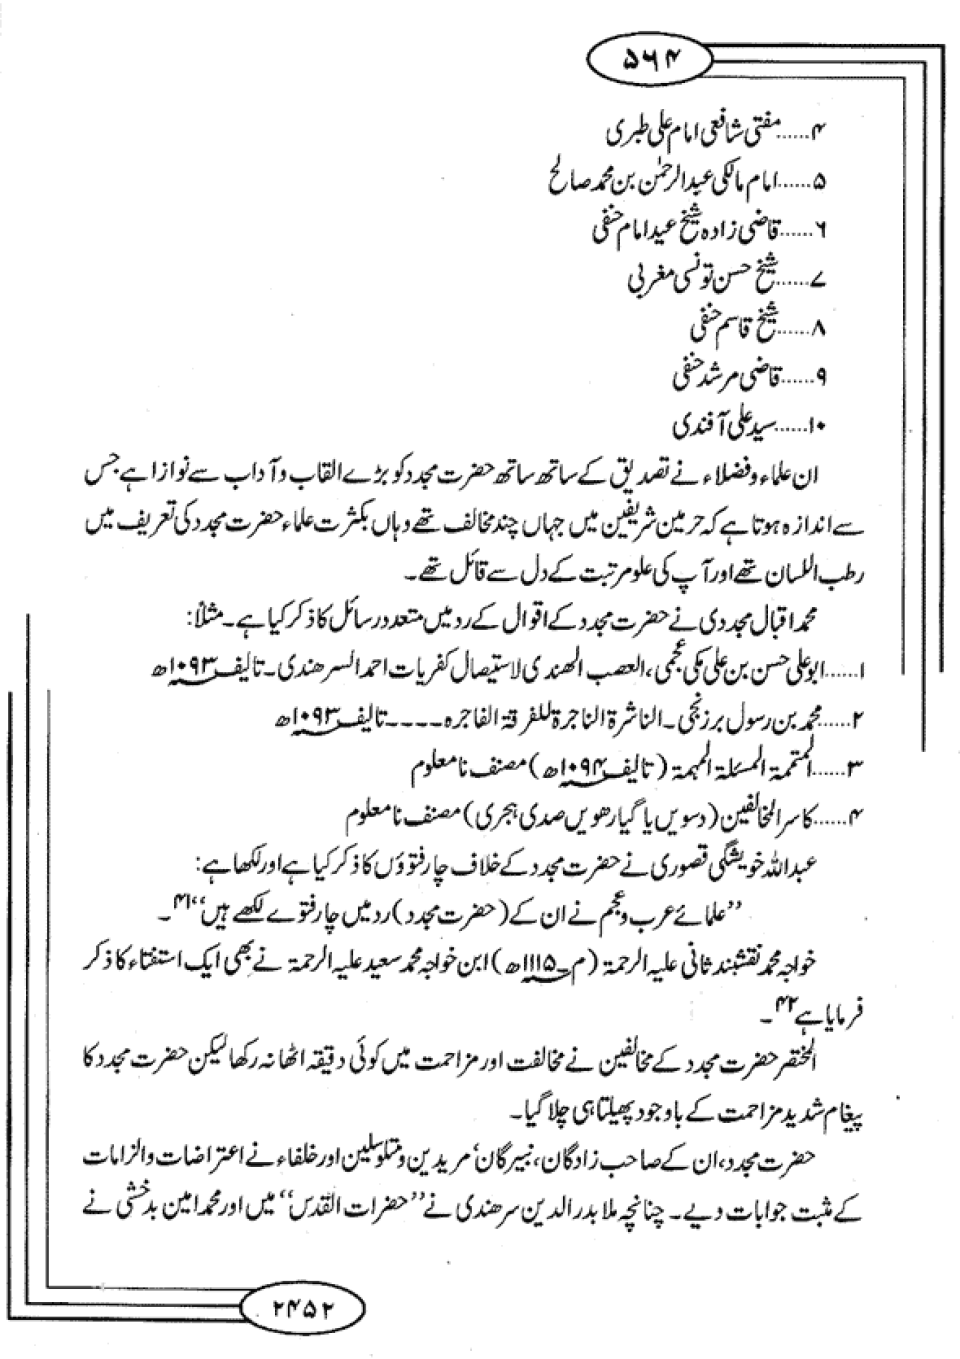 ۵۶۴
۴......مفتی شافعی امام علی طبری
۵......امام مالکی عبدالرحمٰن بن محمد صالح
۶......قاضی زادہ شیخ عید امام حنفی
۷......شیخ حسن تونسی مغربی
۸......شیخ قاسم حنفی
۹......قاضی مرشد حنفی
۱۰......سید علی آفندی
ان علماء و فضلاء نے تصدیق کے ساتھ ساتھ حضرت مجدد کو بڑے القاب و آداب سے نوازا ہے جس
سے اندازہ ہوتا ہے کہ حرمین شریفین میں جہاں چند مخالف تھے وہاں بکثرت علماء حضرت مجدد کی تعریف میں
رطب اللسان تھے اور آپ کی علو مرتبت کے دل سے قائل تھے۔
محمد اقبال مجددی نے حضرت مجدد کے اقوال کے رد میں متعدد رسائل کا ذکر کیا ہے۔ مثلاً:
۱......ابو علی حسن بن علی مکی عجمی، العصب الھندی لاستیصال کفریات احمد السرھندی۔ تالیف ۱۰۹۳ھ
۲......محمد بن رسول برزنجی۔ الناشرۃ الناجرۃ للفرقۃ الفاجرہ۔۔۔۔ تالیف ۱۰۹۳ھ
۳......المتممۃ المسئلۃ المہمۃ (تالیف ۱۰۹۴ھ) مصنف نامعلوم
۴......کاسر المخالفین (دسویں یا گیارھویں صدی ہجری) مصنف نامعلوم
عبداللہ خویشگی قصوری نے حضرت مجدد کے خلاف چار فتوؤں کا ذکر کیا ہے اور لکھا ہے:
”علمائے عرب و عجم نے ان کے (حضرت مجدد) رد میں چار فتوے لکھے ہیں“۴۱۔
خواجہ محمد نقشبند ثانی علیہ الرحمۃ (م ۱۱۱۵ھ) ابن خواجہ محمد سعید علیہ الرحمۃ نے بھی ایک استفتاء کا ذکر
فرمایا ہے۴۲۔
المختصر حضرت مجدد کے مخالفین نے مخالفت اور مزاحمت میں کوئی دقیقہ اٹھا نہ رکھا لیکن حضرت مجدد کا
پیغام شدید مزاحمت کے باوجود پھیلتا ہی چلا گیا۔
حضرت مجدد، ان کے صاحب زادگان، نبیرگان، مریدین و متوسلین اور خلفاء نے اعتراضات والزامات
کے مثبت جوابات دیے۔ چنانچہ ملا بدر الدین سرھندی نے ”حضرات القدس“ میں اور محمد امین بدخشی نے
۲۴۵۲